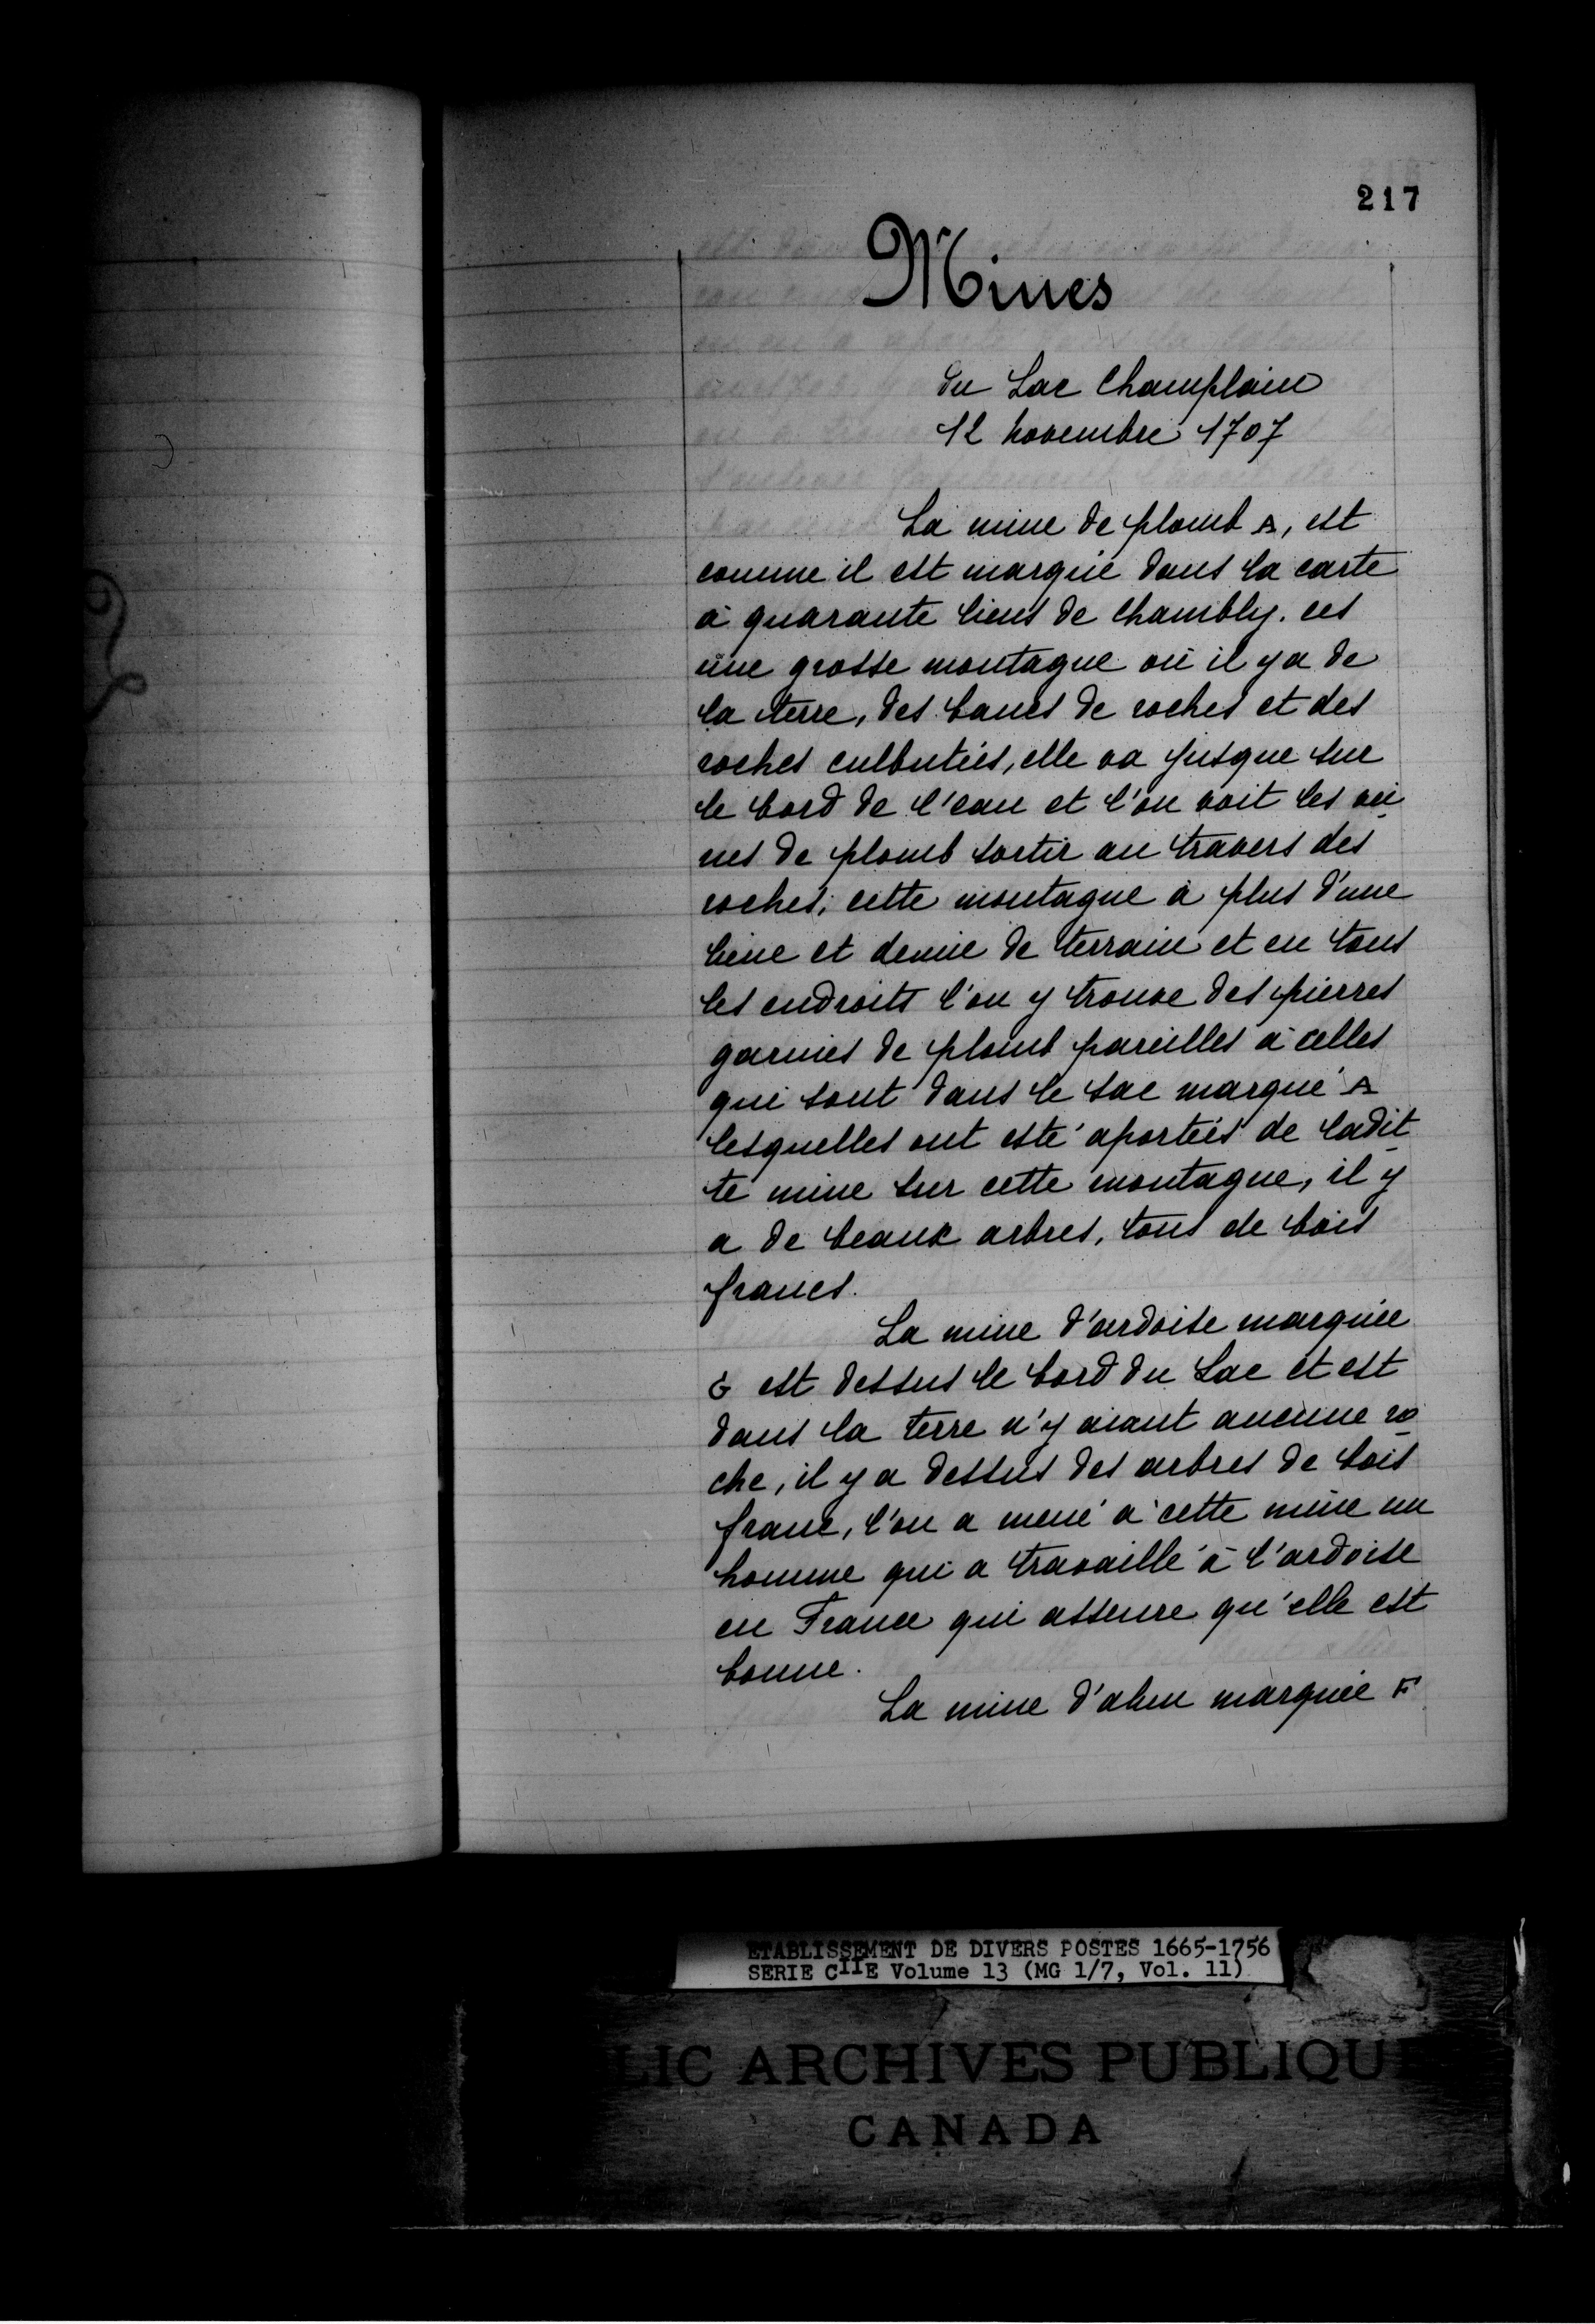 217
Mines
du Lac Champlain
12 novembre 1707
La mine de plomb A, est
comme il est marqué dans la carte
à quarante lieus de Chambly. ces
une grosse montagne où il y a de
la terre, des bancs de roches et des
roches culbutées, elle va jusque sur
le bord de l'eau et l'on voit les vei
nes de plomb sortir au travers des
roches; cette montagne à plus d'une
lieue et demie de terrain et en tous
les endroits l'on y trouve des pierres
garnies de plomb pareilles à celles
qui sont dans le sac marqué A
lesquelles ont esté aportées de ladit
te mine sur cette montagne, il y
a de beaux arbres, tous de bois
francs.
La mine d'ardoise marquée
G est dessus le bord du Lac et est
dans la terre n'y aiant aucune ro
che, il y a dessus des arbres de bois
franc, l'on a mené à cette mine un
homme qui a travaillé à l'ardoise
en France qui asseure qu'elle est
bonne.
La mine d'alun marquée F
ETABLISSEMENT DE DIVERS POSTES 1665-1756
SERIE CIIE Volume 13 (MG 1/7, Vol. 11)
LIC ARCHIVES PUBLIQU
CANADA